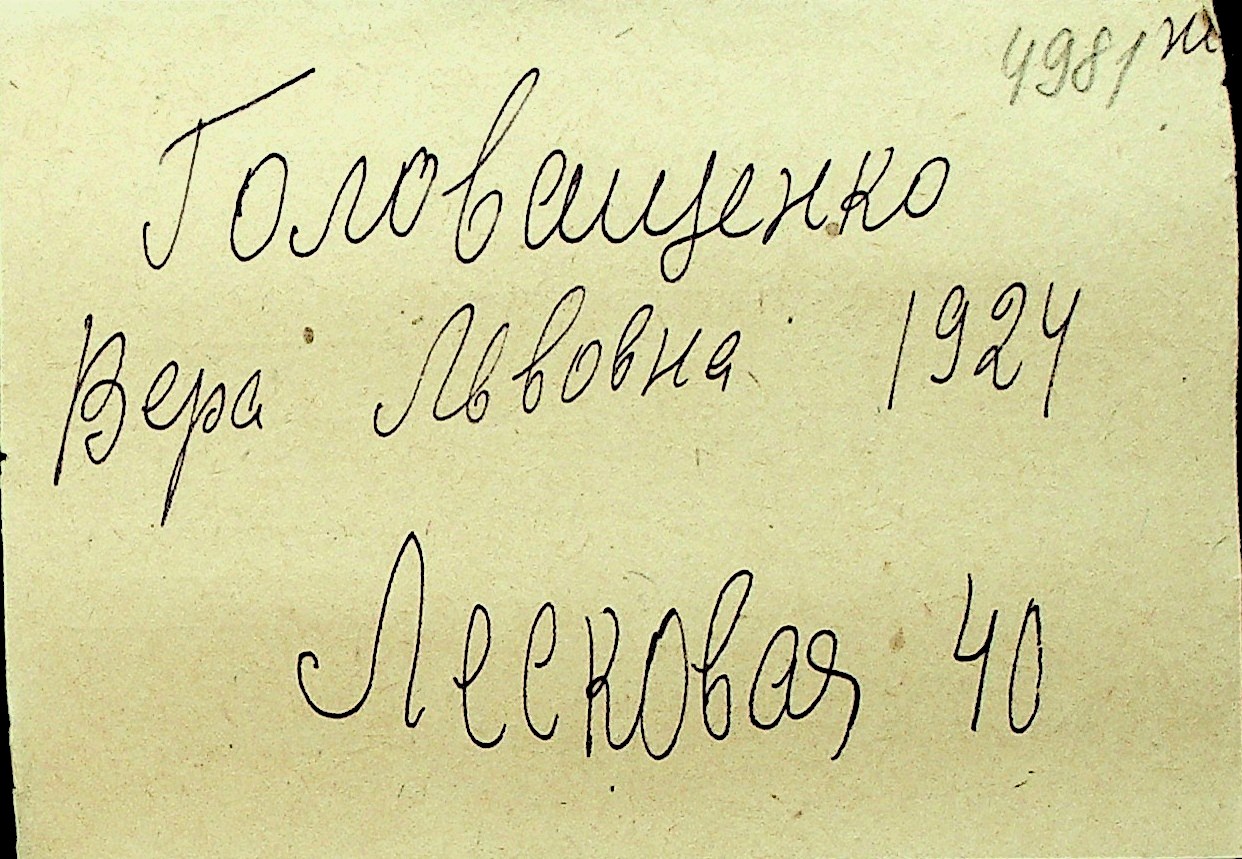 4981
Головащенко
Вера Львовна 1924
Лесковая 40